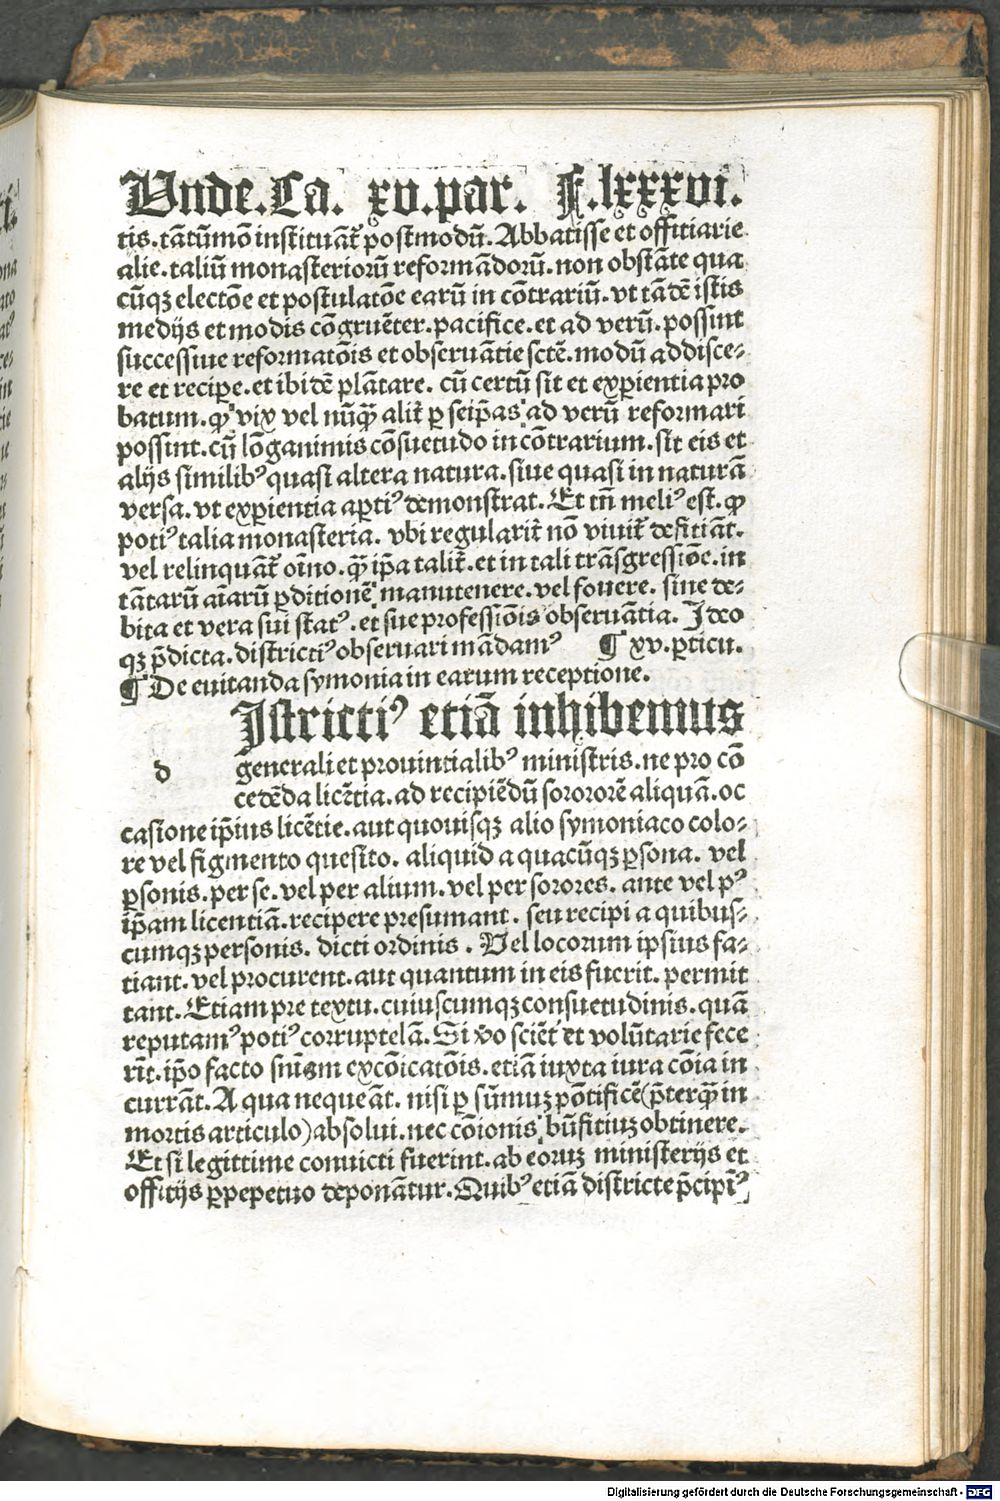 Vnde.Ca. xv.par. F.lxxxvi.
tis.tātūmō instituāt᷑ postmodū.Abbatisse et offitiarie
alie.taliū monasteriorū reformādorū.non obstāte qua
cūqꝫ electōe et postulatōe earū in cōtrariū.vt tādē istis
medijs et modis cōgruēter.pacifice.et ad verū.possint
successiue reformatōis et obseruātie sctē.modū addisce⸗
re et reciꝑe.et ibidē plātare. cū certū sit et exꝑientia pro
batum.ꝙ vix vel nūqꝫ̄ alit᷑ ꝑ seip̄as ad verū reformari
possint.cū lōganimis cōsuetudo in cōtrarium.sit eis et
alijs similibꝰ quasi altera natura.siue quasi in naturā
versa.vt exꝑientia aꝑtiꝰ demonstrat.Et tn̄ meliꝰ est.ꝙ
potiꝰ talia monasteria. vbi regularit᷑ nō viuit᷑ defitiāt.
vel relinquāt᷑ oīno.qꝫ̄ ip̄a talit᷑.et in tali trāsgressiōe.in
tātarū aīarū ꝑditionē manutenere.vel fouere. sine de⸗
bita et vera sui statꝰ.et sue professiōis obseruātia. Ideo
qꝫ p̄dicta.districtiꝰ obseruari mādamꝰ ¶ xv.ꝑticu.
¶ De euitanda symonia in earum receptione.
Istrictiꝰ etiā inhibemus
d generali et prouintialibꝰ ministris.ne pro cō
cedēda licētia.ad recipiēdū sorororē aliquā.oc
casione ip̄ius licētie.aut quouisqꝫ alio symoniaco colo⸗
re vel figmento quesito. aliquid a quacūqꝫ ꝑsona. vel
ꝑsonis.per se.vel per alium.vel per sorores. ante vel pꝰ
ip̄am licentiā.recipere presumant. seu recipi a quibus⸗
cumqꝫ personis. dicti ordinis. Vel locorum ipsius fa⸗
tiant.vel procurent.aut quantum in eis fuerit. permit
tant.Etiam pretextu.cuiuscumqꝫ consuetudinis.quā
reputamꝰ potiꝰ corruptelā.Si v̄o sciēt᷑ et volūtarie fece
rīt.ip̄o facto sniām excōicatōis.etiā iuxta iura cōia in
currāt.A qua nequeāt. nisi ꝑ sūmuꝫ pōtificē(p̄terqꝫ̄ in
mortis articulo)absolui.nec cōionis bn̄fitiuꝫ obtinere.
Et si legittime conuicti fuerint.ab eoruꝫ ministerijs et
offitijs ꝑpepetuo deponātur.Quibꝰ etiā districte p̄cipīꝰ
Digitalisierung gefördert durch die Deutsche Forschungsgemeinschaft - DFG